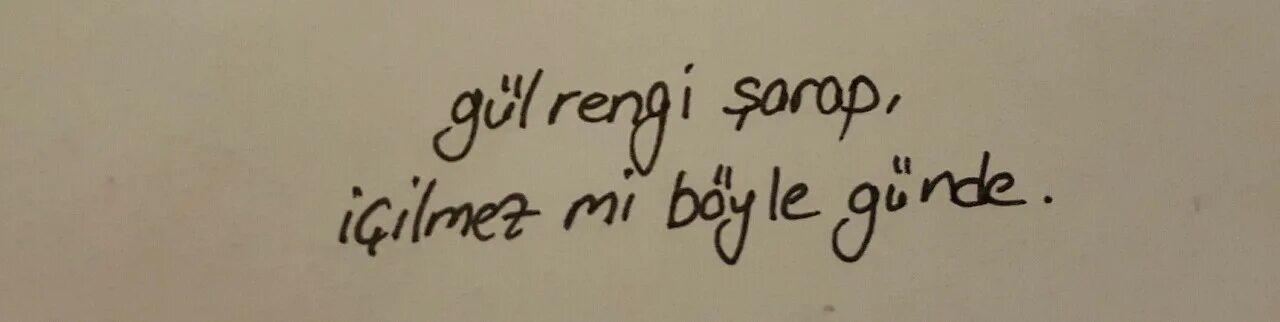 gül rengi şarap,
içilmez mi böyle günde.